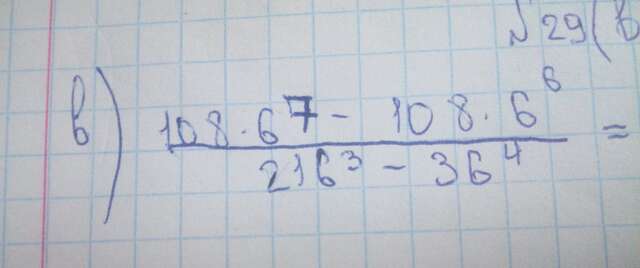 №29(в
в) 108·6⁷ - 108·6⁶ =
216³ - 36⁴